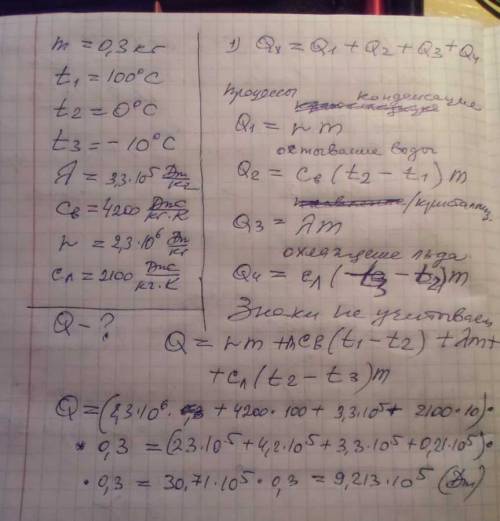 m = 0,3 кг
t₁ = 100°C
t₂ = 0°C
t₃ = -10°C
λ = 3,3·10⁵ Дж/кг
cв = 4200 Дж/кг·К
r = 2,3·10⁶ Дж/кг
cл = 2100 Дж/кг·К
Q - ?
1) Q = Q₁ + Q₂ + Q₃ + Q₄
процессы конденсация
Q₁ = r m
остывание воды
Q₂ = cв (t₂ - t₁) m
/кристаллиз.
Q₃ = λm
охлаждение льда
Q₄ = cл (t₃ - t₂) m
Знаки не учитываем
Q = r m + mcв (t₁ - t₂) + λm +
+ cл (t₂ - t₃) m
Q = (2,3·10⁶ + 4200·100 + 3,3·10⁵ + 2100·10)·
* 0,3 = (23·10⁵ + 4,2·10⁵ + 3,3·10⁵ + 0,21·10⁵)·
· 0,3 = 30,71·10⁵ · 0,3 = 9,213·10⁵ (Дж)